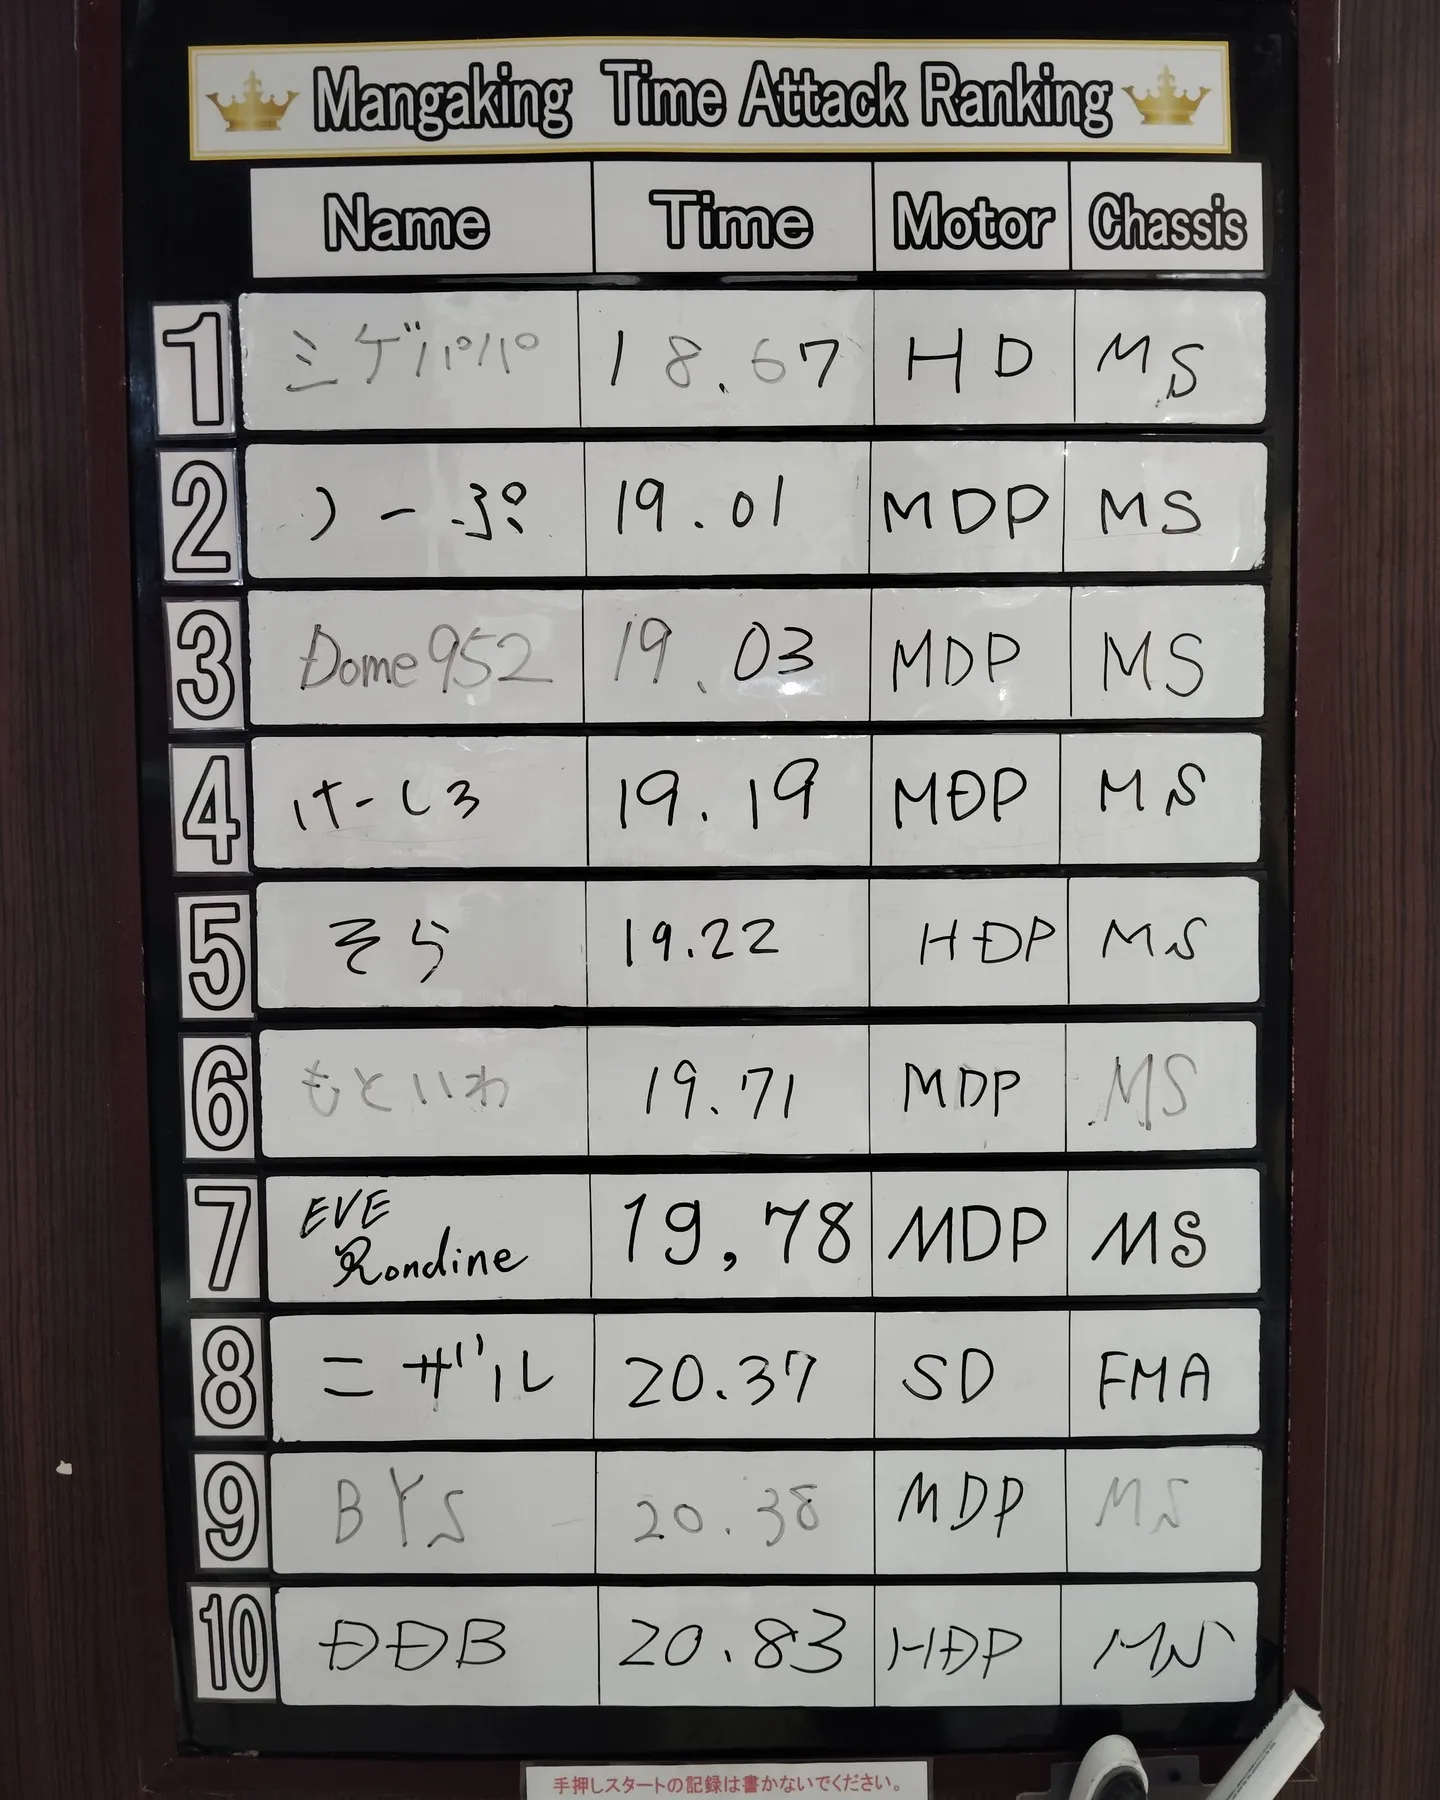 Mangaking Time Attack Ranking
Name Time Motor Chassis
1 ミゲパパ 18.67 HD MS
2 つーぷ 19.01 MDP MS
3 Dome952 19.03 MDP MS
4 けーしろ 19.19 MDP MS
5 そら 19.22 HDP MS
6 もといわ 19.71 MDP MS
7 EVE
Rondine 19,78 MDP MS
8 ニザル 20.37 SD FMA
9 BYS 20.38 MDP MS
10 DDB 20.83 HDP MS
手押しスタートの記録は書かないでください。